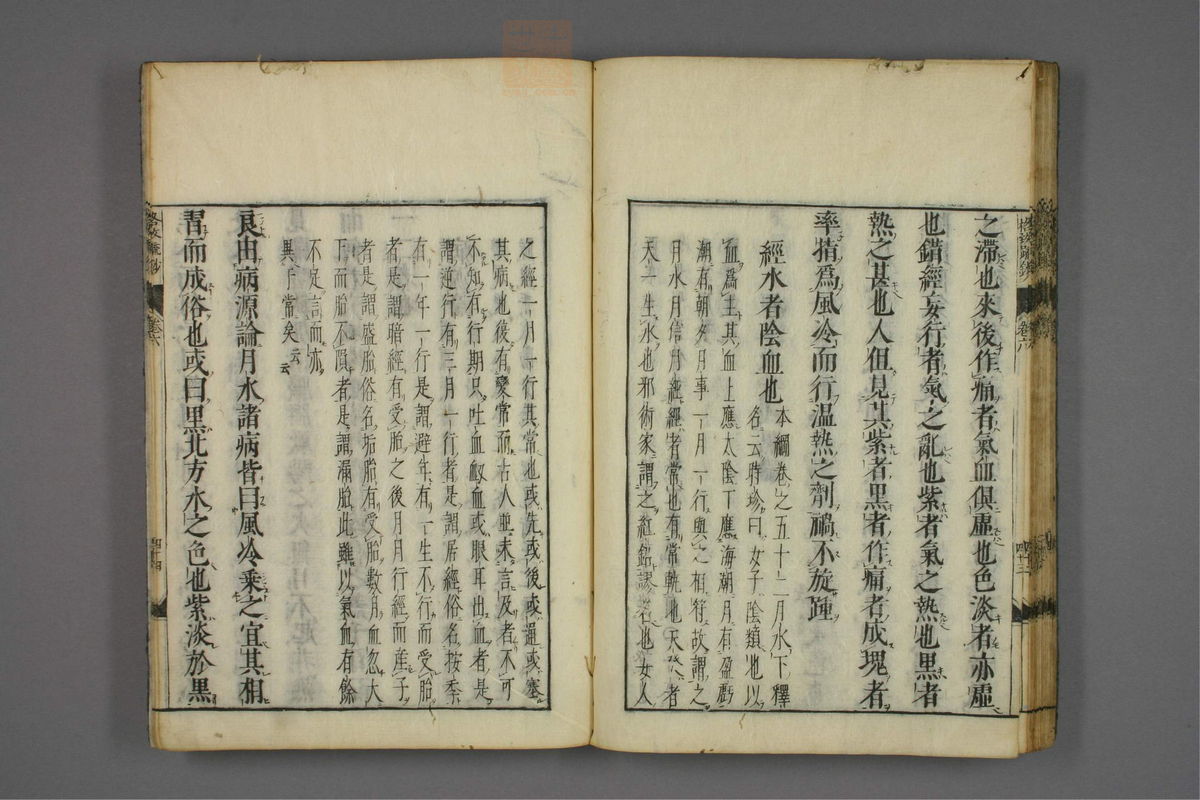 之滯也來後作痛者氣血俱虛也色淡者亦虛
也錯經妄行者氣之亂也紫者氣之熱也黑者
熱之甚也人但見其紫者黑者作痛者成塊者
率指為風冷而行温熱之劑禍不旋踵
經水者陰血也
本綱卷之五十二月水下釋
名云時珍曰女子陰類也以
血爲主其血上應太陰下應海潮月有盈虧
潮有朝夕月事一月一行與之相符故謂之
月水月信月經經者常也有常軌也天癸者
天一生水也邪術家謂之紅鉛謬名也女人
之經一月一行其常也或先或後或通或塞
其病也復有變常而古人並未言及者不可
不知有行期只吐血衄血或眼耳出血者是
謂逆行有三月一行者是謂居經俗名按季
有一年一行是謂避年有一生不行而受胎
者是謂暗經有受胎之後月月行經而產子
者是謂盛胎俗名垢胎有受胎數月血忽大
下而胎不隕者是謂漏胎此雖以氣血有餘
不足言而亦
異于常矣云云
良由病源論月水諸病皆曰風冷乘之宜其相
習而成俗也或曰黑北方水之色也紫淡於黑
卷六
四十三
卷六
四十四